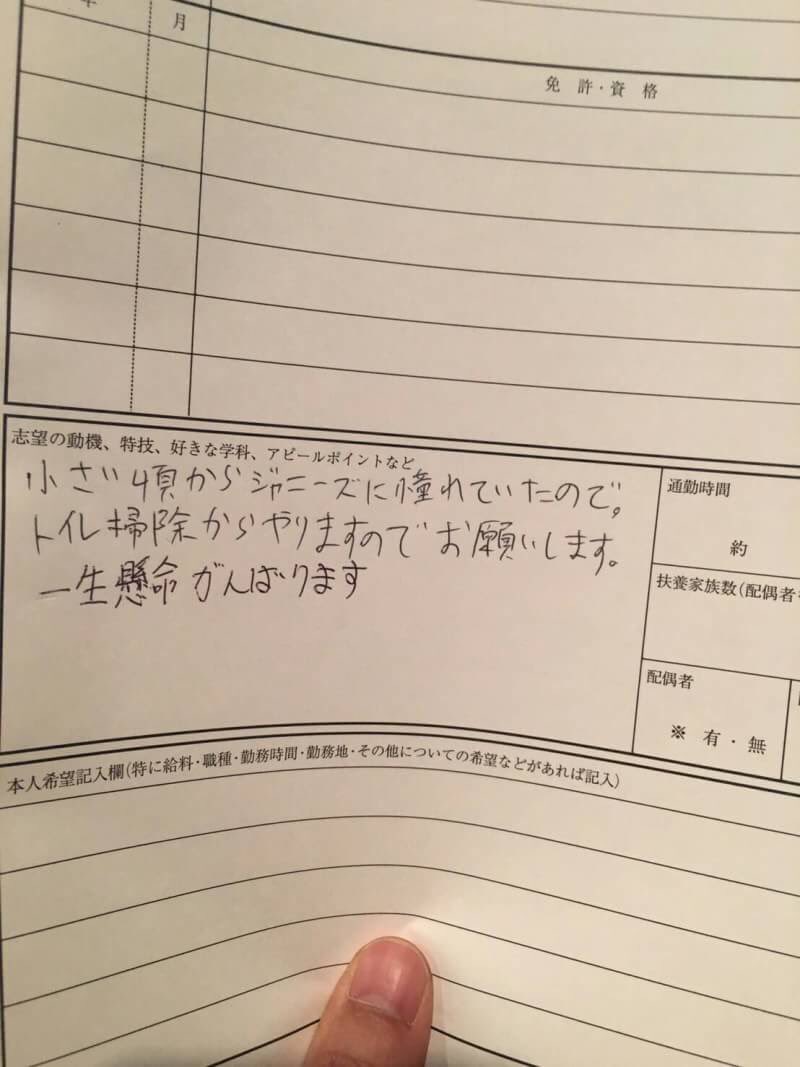 年 月
免許・資格
志望の動機、特技、好きな学科、アピールポイントなど
小さい頃からジャニーズに憧れていたので。
トイレ掃除からやりますのでお願いします。
一生懸命がんばります
通勤時間
約
扶養家族数(配偶者を
配偶者
※ 有・無
本人希望記入欄(特に給料・職種・勤務時間・勤務地・その他についての希望などがあれば記入)